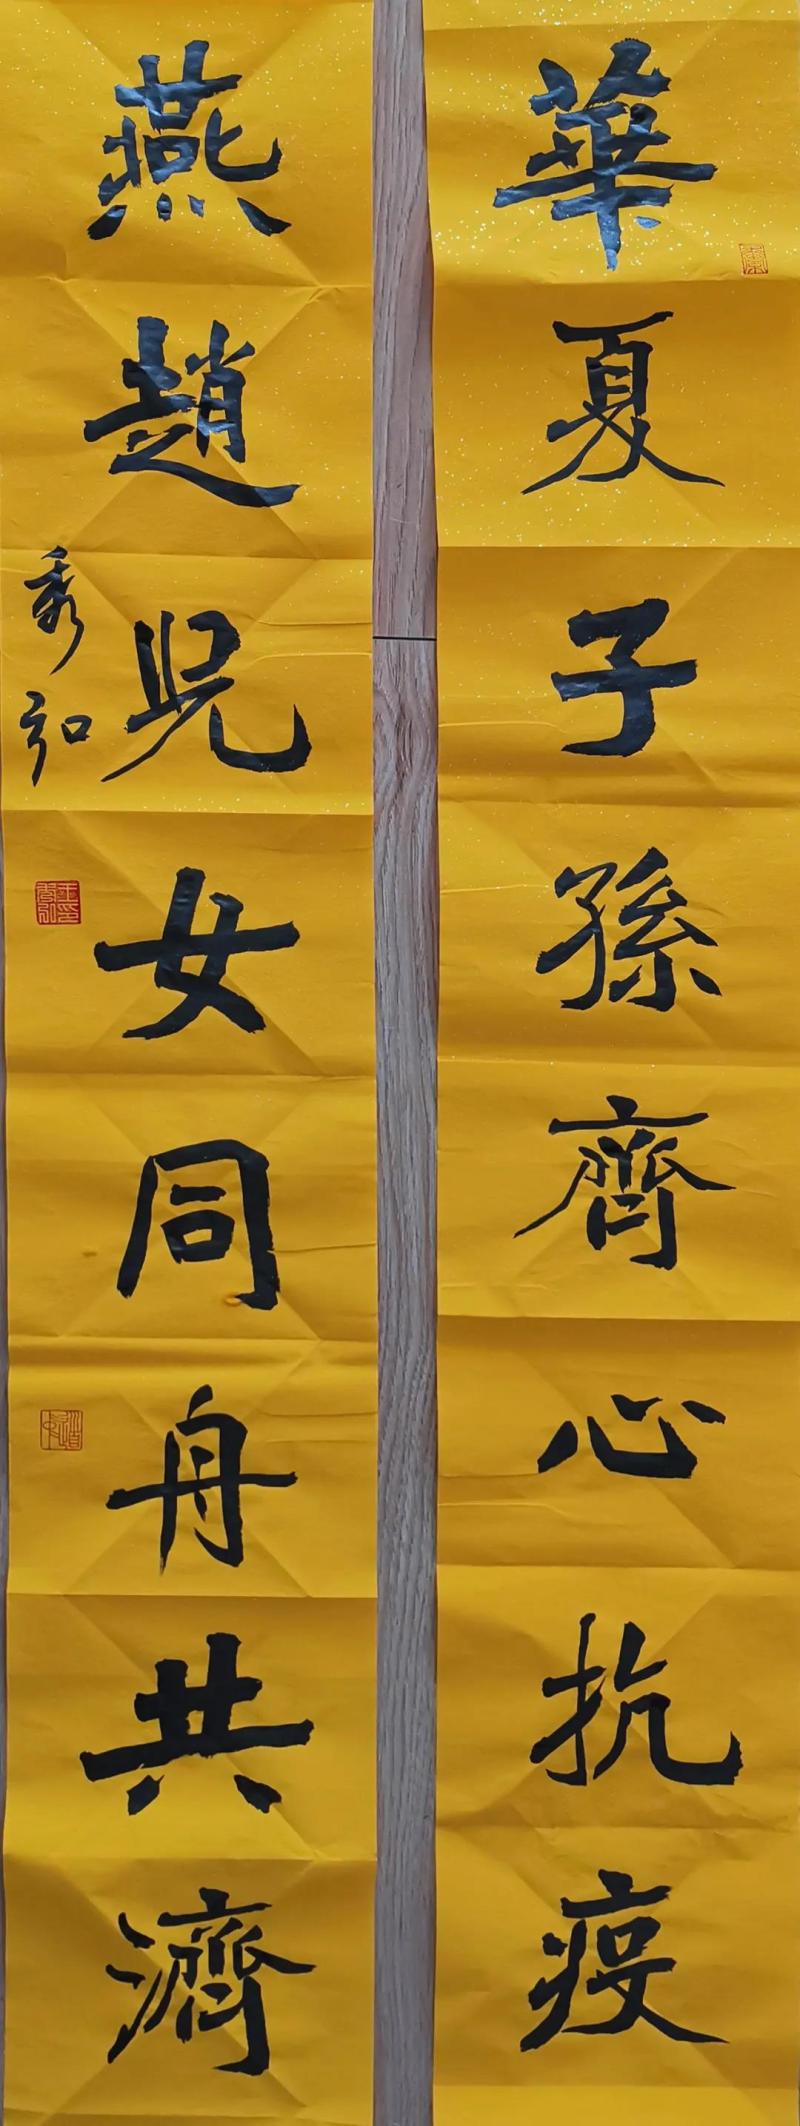 華夏子孫齊心抗疫
燕趙兒女同舟共濟
秀弘